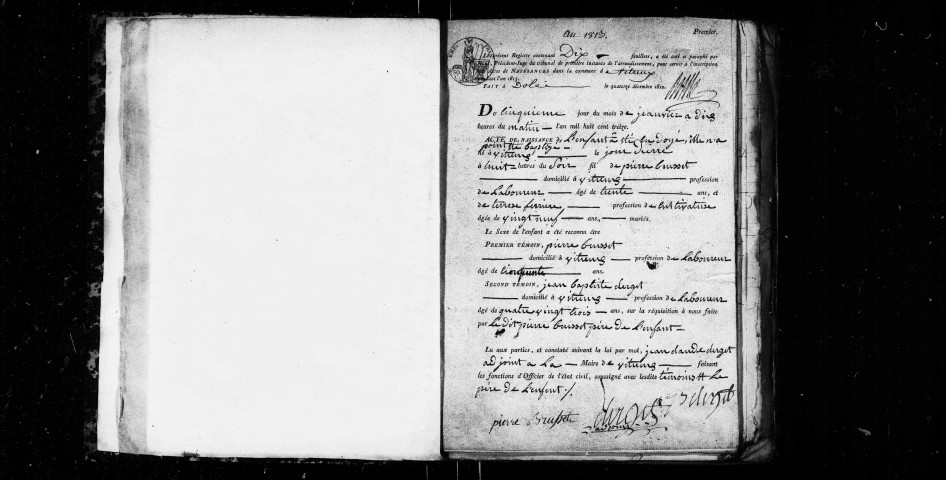 An 1813.
Premier.
Le présent Registre contenant Dix feuillets, a été coté et paraphé par
Président-Juge du tribunal de première instance de l'arrondissement, pour servir à l'inscription
actes de NAISSANCES dans la commune de vitreux
l'an 1813.
FAIT à Dole le quatorze décembre 1812.
Du cinquieme jour du mois de jeanvier a dix
heures du matin l'an mil huit cent treize.
ACTE DE NAISSANCE de L'enfant a été
point été baptize
né à vitreux le jour d'ierre
à huit heures du Soir fil de pierre buisset
domicilié à vitreux profession
de Laboureur âgé de trente ans, et
de terese ferriere profession de Cultivatrise
âgée de vingt neuf ans, mariés.
Le Sexe de l'enfant a été reconnu être
PREMIER TÉMOIN, pierre buisset
domicilié à vitreux profession de Laboureur
âgé de cinquante ans.
SECOND TÉMOIN, jean baptiste dirget
domicilié à vitreux profession de Laboureur
âgé de quatre vingt trois ans, sur la réquisition à nous faite
par Le dit pierre buisset père de L'enfant
Lu aux parties, et constaté suivant la loi par moi, jean claude dirget
adjoint a La Maire de vitreux faisant
les fonctions d'Officier de l'état civil, soussigné avec lesdits témoins et Le
père de L'enfent ./.
pierre Buisset dirget B dirget
adjoint